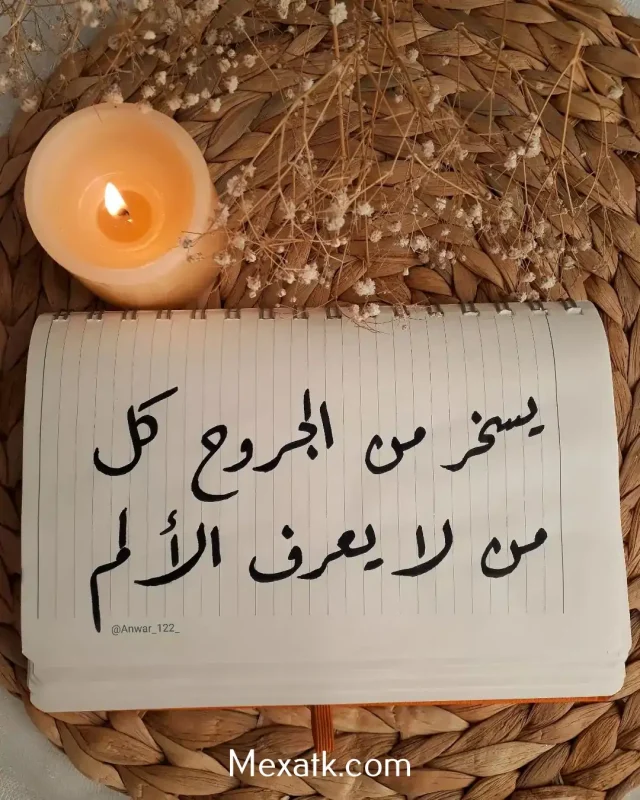 يسخر من الجروح كل
من لا يعرف الألم
@Anwar_122_
Mexatk.com